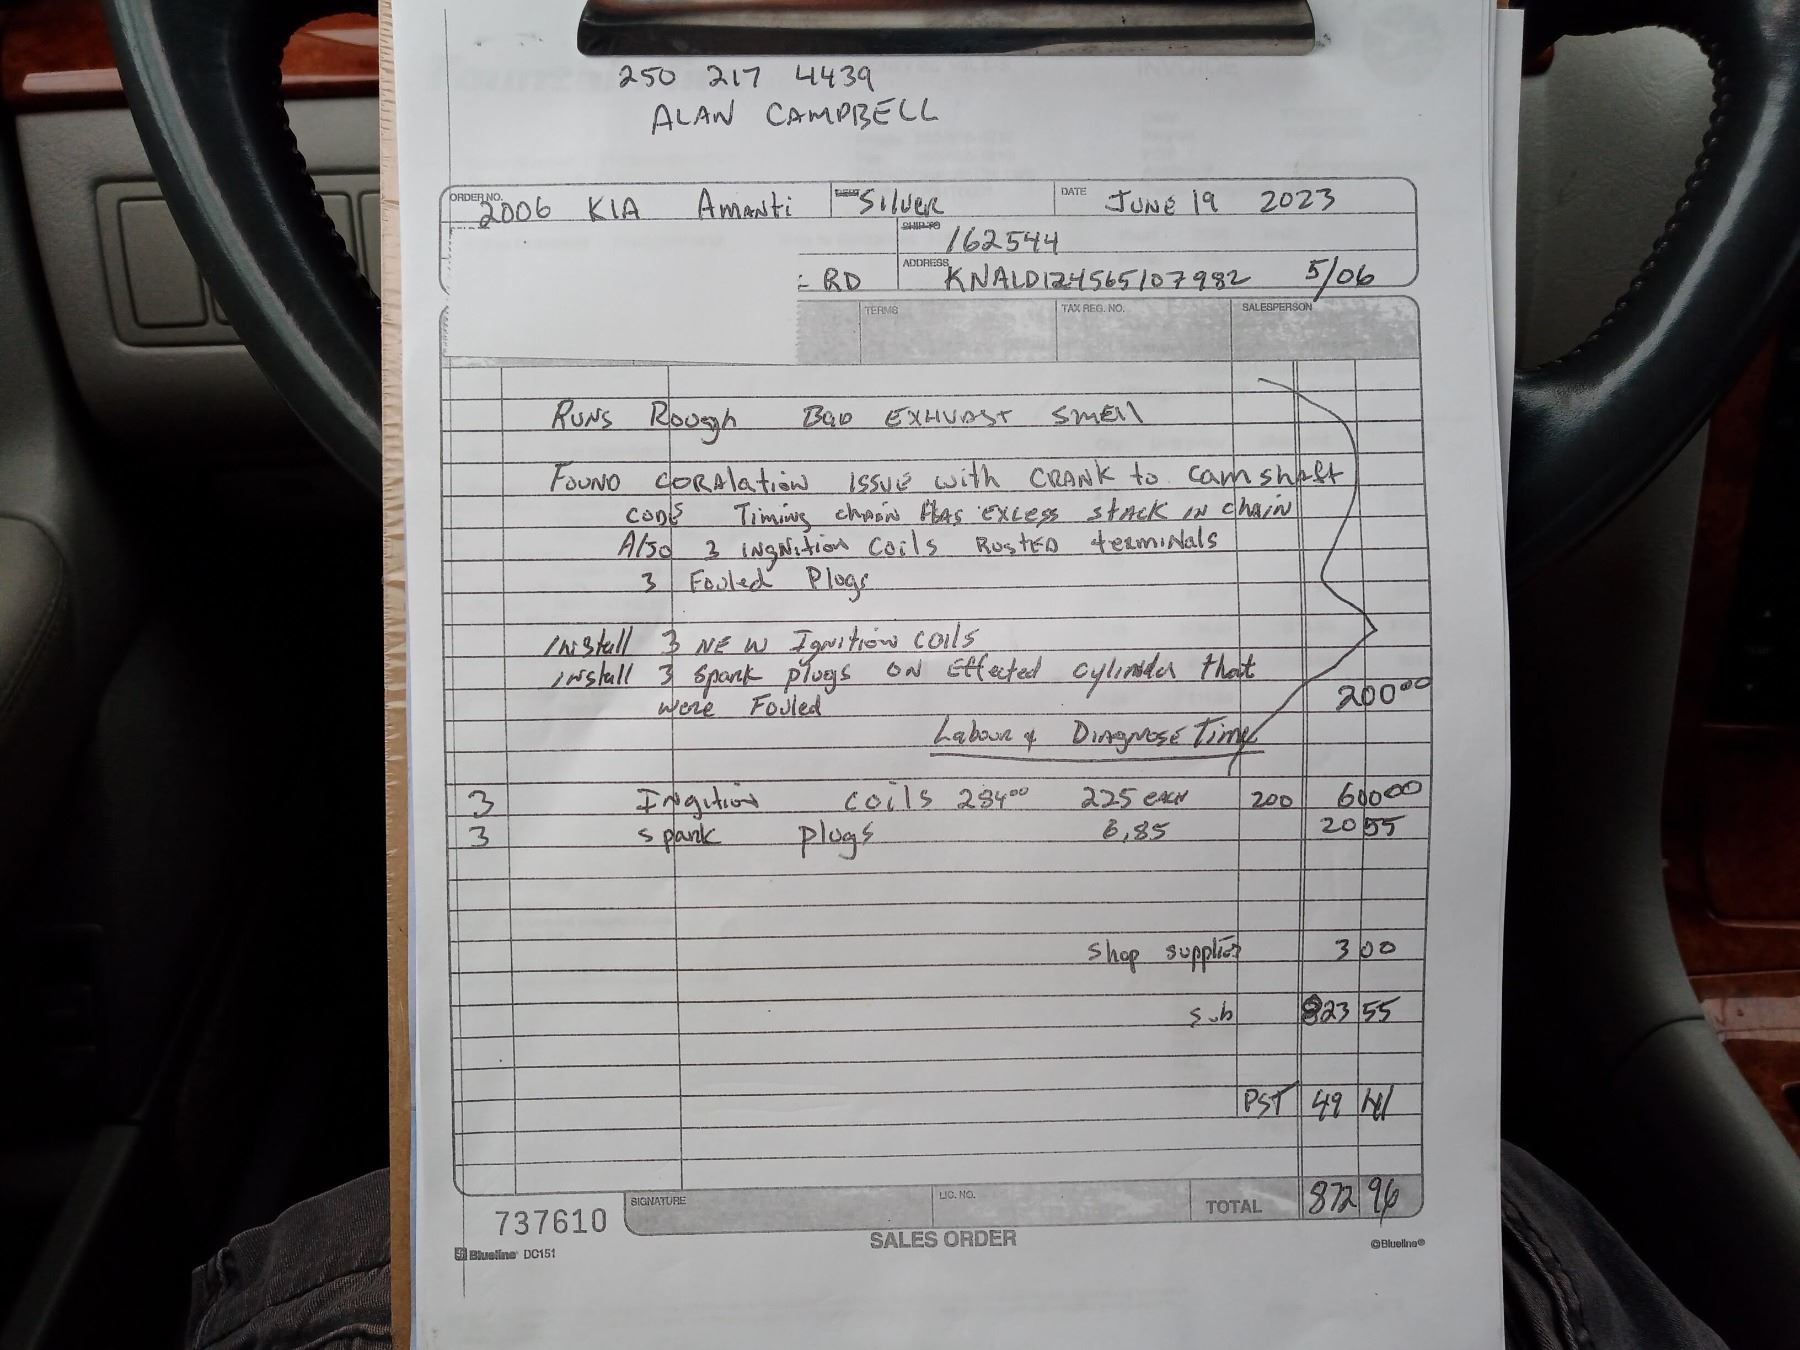 250 217 4439
ALAN CAMPBELL
ORDER NO. 2006 KIA Amanti Silver DATE JUNE 19 2023
SHIP TO 162544
RD ADDRESS KNALD124565107982 5/06
TERMS TAX REG. NO. SALESPERSON
RUNS Rough BAD EXHUAST SMEll
FOUND CORAlation ISSUE with CRANK to camshaft
CODES Timing chain HAS EXCESS SlACK IN chain
Also 3 INgNition Coils RUSTED terminals
3 Fouled Plugs
INstall 3 NEW Ignition coils
install 3 spark plugs ON Effected cylinder that
were Fouled 200 00
Labour & DIAGNOSE Time
3 INgition coils 284 00 225 EACH 200 600 00
3 spark plugs 6,85 20 55
shop supplies 3 00
sub 823 55
PST 49 41
SIGNATURE LIC. NO. TOTAL 872 96
737610
SALES ORDER
Blueline DC151 ©Blueline®